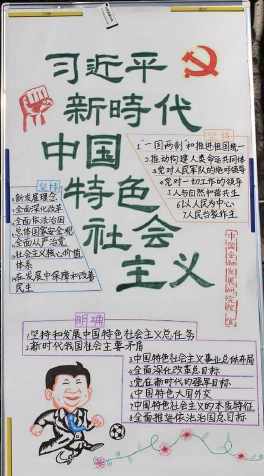 习近平
新時代
中国
特色
社会
主义
坚持
1."一国两制"和推进祖国统一
2.推动构建人类命运共同体
3.党对人民军队的绝对领导
4.党对一切工作的领导
5.人与自然和谐共生
6.以人民为中心
7.人民当家作主
坚持
新发展理念
全面深化改革
全面依法治国
总体国家安全观
全面从严治党
社会主义核心价值
体系
在发展中保障和改善
民生
明确
1.坚持和发展中国特色社会主义总任务
2.新时代我国社会主要矛盾
3.中国特色社会主义事业总体布局
4.全面深化改革总目标
5.党在新时代的强军目标
6.中国特色大国外交
7.中国特色社会主义的本质特征
8.全面推进依法治国总目标